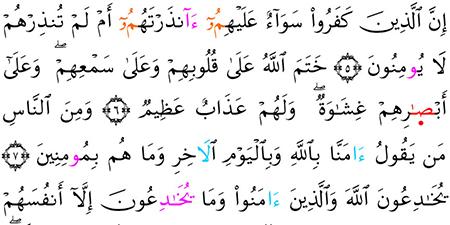 إِنَّ ٱلَّذِينَ كَفَرُواْ سَوَآءٌ عَلَيْهِمُۥٓ ءَآنذَرْتَهُمُۥٓ أَمْ لَمْ تُنذِرْهُمْ
لَا يُومِنُونَ ۝٥ خَتَمَ ٱللَّهُ عَلَىٰ قُلُوبِهِمْ وَعَلَىٰ سَمْعِهِمْۖ وَعَلَىٰٓ
أَبْصَٰرِهِمْ غِشَٰوَةٌۖ وَلَهُمْ عَذَابٌ عَظِيمٌ ۝٦ وَمِنَ ٱلنَّاسِ
مَن يَقُولُ ءَامَنَّا بِٱللَّهِ وَبِٱلْيَوْمِ ٱلَاخِرِ وَمَا هُم بِمُومِنِينَ ۝٧
يُخَٰدِعُونَ ٱللَّهَ وَٱلَّذِينَ ءَامَنُواْ وَمَا يُخَٰدِعُونَ إِلَّآ أَنفُسَهُمْ